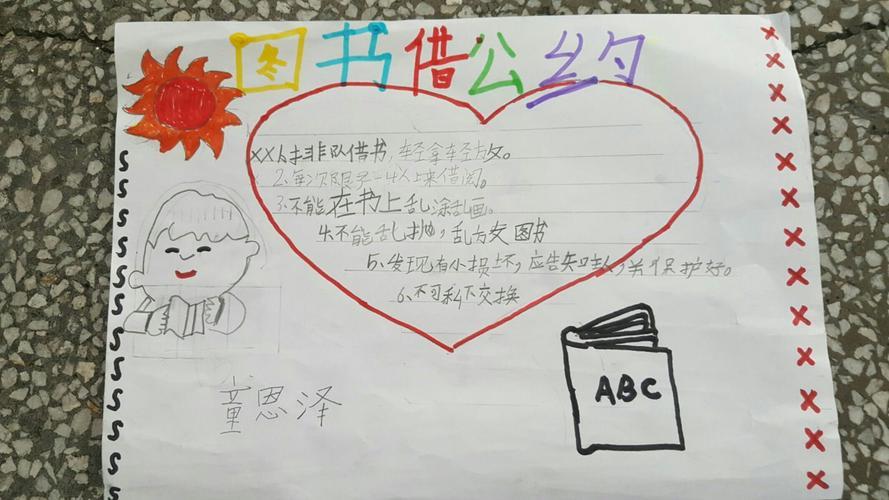 图书借公约
XX人排队借书,轻拿轻放。
2、每次限3-4人上来借阅。
3、不能在书上乱涂乱画。
4、不能乱抛,乱放图书
5、发现有小损坏,应告知,并保护好。
6、不可私下交换
ABC
童恩泽